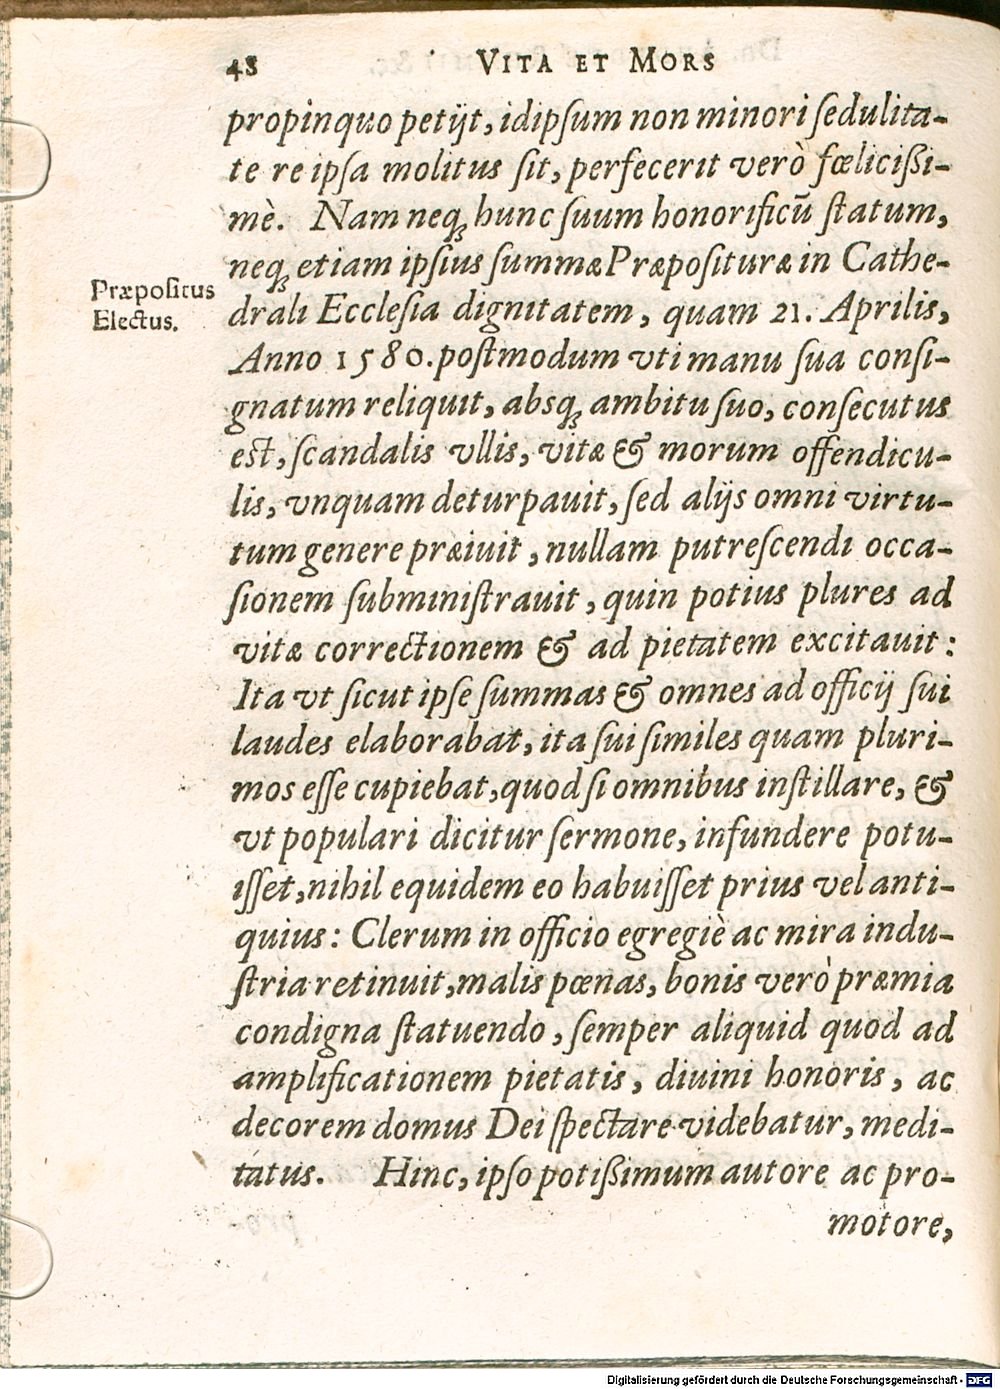 48 VITA ET MORS
propinquo petijt, idipſum non minori ſedulita-
te re ipſa molitus ſit, perfecerit verò fœliciſſi-
mè. Nam neqꝫ hunc ſuum honorificū ſtatum,
neqꝫ etiam ipſius ſummæ Præpoſituræ in Cathe-
Præpoſitus
Electus.
drali Eccleſia dignitatem, quam 21. Aprilis,
Anno 1580. poſtmodum vti manu ſua conſi-
gnatum reliquit, absqꝫ ambitu ſuo, conſecutus
eſt, ſcandalis vllis, vitæ & morum offendicu-
lis, vnquam deturpauit, ſed alijs omni virtu-
tum genere præiuit, nullam putreſcendi occa-
ſionem ſubminiſtrauit, quin potius plures ad
vitæ correctionem & ad pietatem excitauit:
Ita vt ſicut ipſe ſummas & omnes ad officij ſui
laudes elaborabat, ita ſui ſimiles quam pluri-
mos eſſe cupiebat, quod ſi omnibus inſtillare, &
vt populari dicitur ſermone, infundere potu-
iſſet, nihil equidem eo habuiſſet prius vel anti-
quius: Clerum in officio egregiè ac mira indu-
ſtria retinuit, malis pœnas, bonis verò præmia
condigna ſtatuendo, ſemper aliquid quod ad
amplificationem pietatis, diuini honoris, ac
decorem domus Dei ſpectare videbatur, medi-
tatus. Hinc, ipſo potiſſimum autore ac pro-
motore,
Digitalisierung gefördert durch die Deutsche Forschungsgemeinschaft - DFG